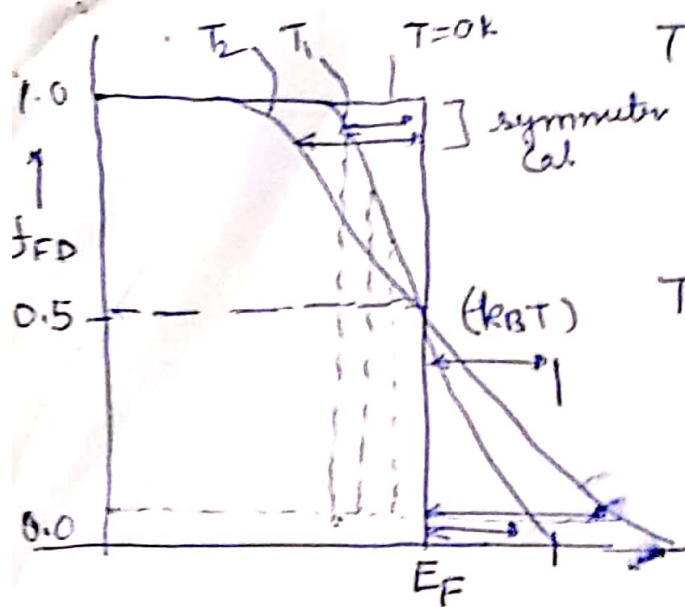 T₂ T₁ T=0K T
1.0
] symmetri
cal
f_FD
0.5
(k_BT) T
0.0
E_F